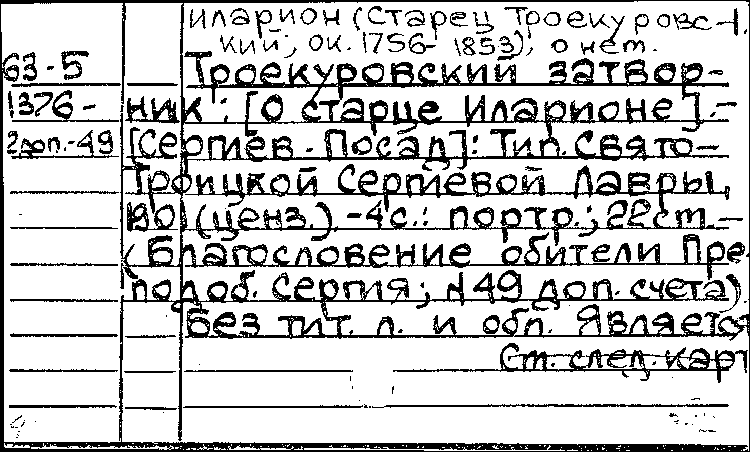 Иларион (Старец Троекуровс-
кий; ок. 1756-1853), о нем.
63-5 Троекуровский затвор-
1376- ник: [О старце Иларионе].-
2доп.-49 [Сергиев-Посад]: Тип. Свято-
Троицкой Сергиевой Лавры,
1901 (ценз.).-4с.: портр.; 22см.-
(Благословение обители Пре-
подоб. Сергия; №49 доп. счета).
Без тит. л. и обл. Является
См. след. карт